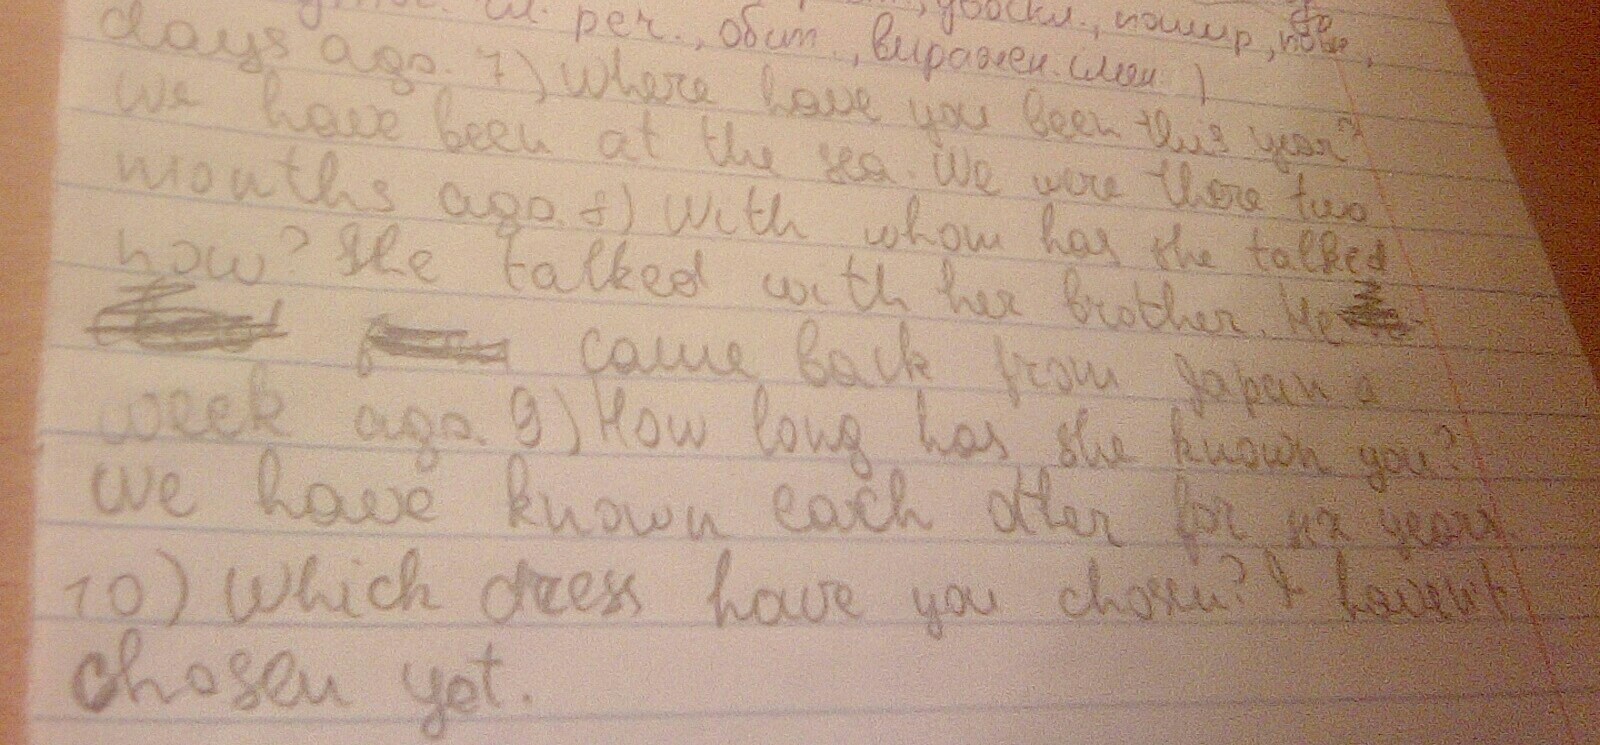 гл. реч., обст., выражен. слов.)
days ago. 7) Where have you been this year?
We have been at the sea. We were there two
months ago. 8) With whom has she talked
now? She talked with her brother. He
came back from Japan a
week ago. 9) How long has she known you?
We have known each other for six years.
10) Which dress have you chosen? I haven't
chosen yet.